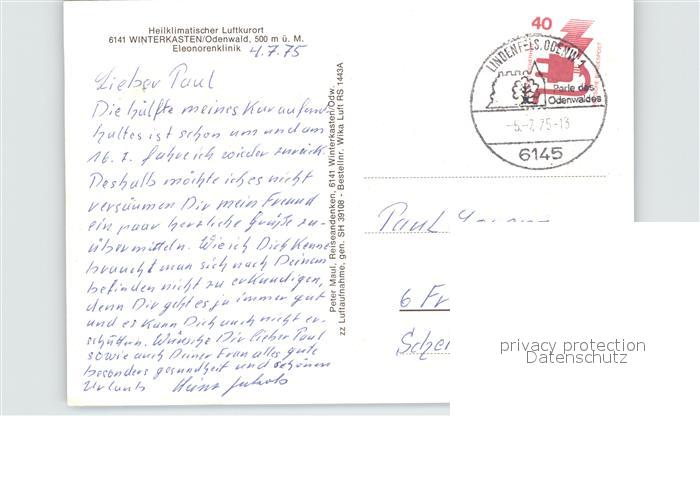 Heilklimatischer Luftkurort
6141 WINTERKASTEN/Odenwald, 500 m ü. M.
Eleonorenklinik
4.7.75
Lieber Paul
Die hälfte meines Kuraufent
haltes ist schon um und am
16. 7. fahre ich wieder zurück.
Deshalb möchte ich es nicht
versäumen Dir mein Freund
ein paar herzliche Grüße zu-
übermitteln. Wie ich Dich Kenne
braucht man sich nach Deinem
befinden nicht zu erkundigen,
denn Dir geht es ja immer gut
und es kann Dich auch nicht er-
schüttern. Wünsche Dir lieber Paul
sowie auch Deiner Frau alles gute
besonders gesundheit und schönen
Urlaub Heinz
Peter Maul, Reiseandenken, 6141 Winterkasten/Odw.
zz Luftaufnahme, gen. SH 39108 - Bestellnr. Wika Luft RS 1443A
40
LINDENFELS, ODENW 1
Perle des
Odenwaldes
-5.-7.75-13
6145
Paul
6 Fr
Sche
privacy protection
Datenschutz